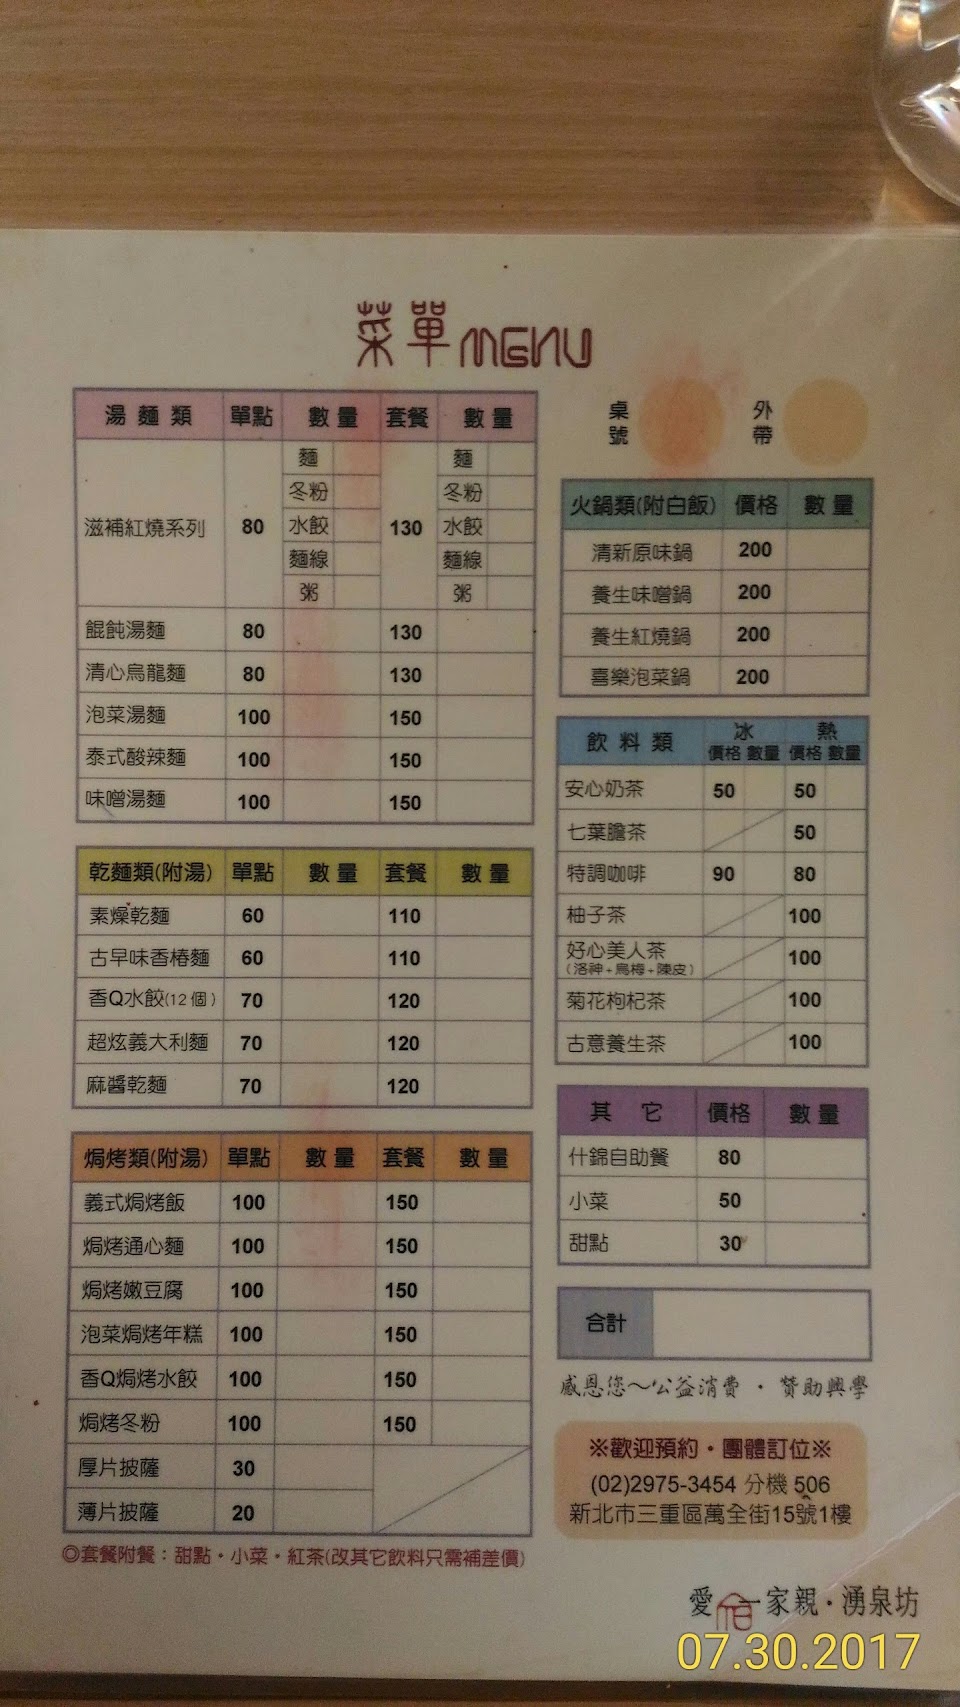 菜單 MENU
湯麵類 單點 數量 套餐 數量
滋補紅燒系列 80 130
麵 麵
冬粉 冬粉
水餃 水餃
麵線 麵線
粥 粥
餛飩湯麵 80 130
清心烏龍麵 80 130
泡菜湯麵 100 150
泰式酸辣麵 100 150
味噌湯麵 100 150
乾麵類(附湯) 單點 數量 套餐 數量
素燥乾麵 60 110
古早味香椿麵 60 110
香Q水餃(12個) 70 120
超炫義大利麵 70 120
麻醬乾麵 70 120
焗烤類(附湯) 單點 數量 套餐 數量
義式焗烤飯 100 150
焗烤通心麵 100 150
焗烤嫩豆腐 100 150
泡菜焗烤年糕 100 150
香Q焗烤水餃 100 150
焗烤冬粉 100 150
厚片披薩 30
薄片披薩 20
◎套餐附餐：甜點・小菜・紅茶(改其它飲料只需補差價)
桌號 外帶
火鍋類(附白飯) 價格 數量
清新原味鍋 200
養生味噌鍋 200
養生紅燒鍋 200
喜樂泡菜鍋 200
飲料類 冰 熱
價格 數量 價格 數量
安心奶茶 50 50
七葉膽茶 50
特調咖啡 90 80
柚子茶 100
好心美人茶 100
(洛神+烏梅+陳皮)
菊花枸杞茶 100
古意養生茶 100
其它 價格 數量
什錦自助餐 80
小菜 50
甜點 30
合計
感恩您～公益消費・贊助興學
※歡迎預約・團體訂位※
(02)2975-3454 分機 506
新北市三重區萬全街15號1樓
愛 一家親・湧泉坊
07.30.2017